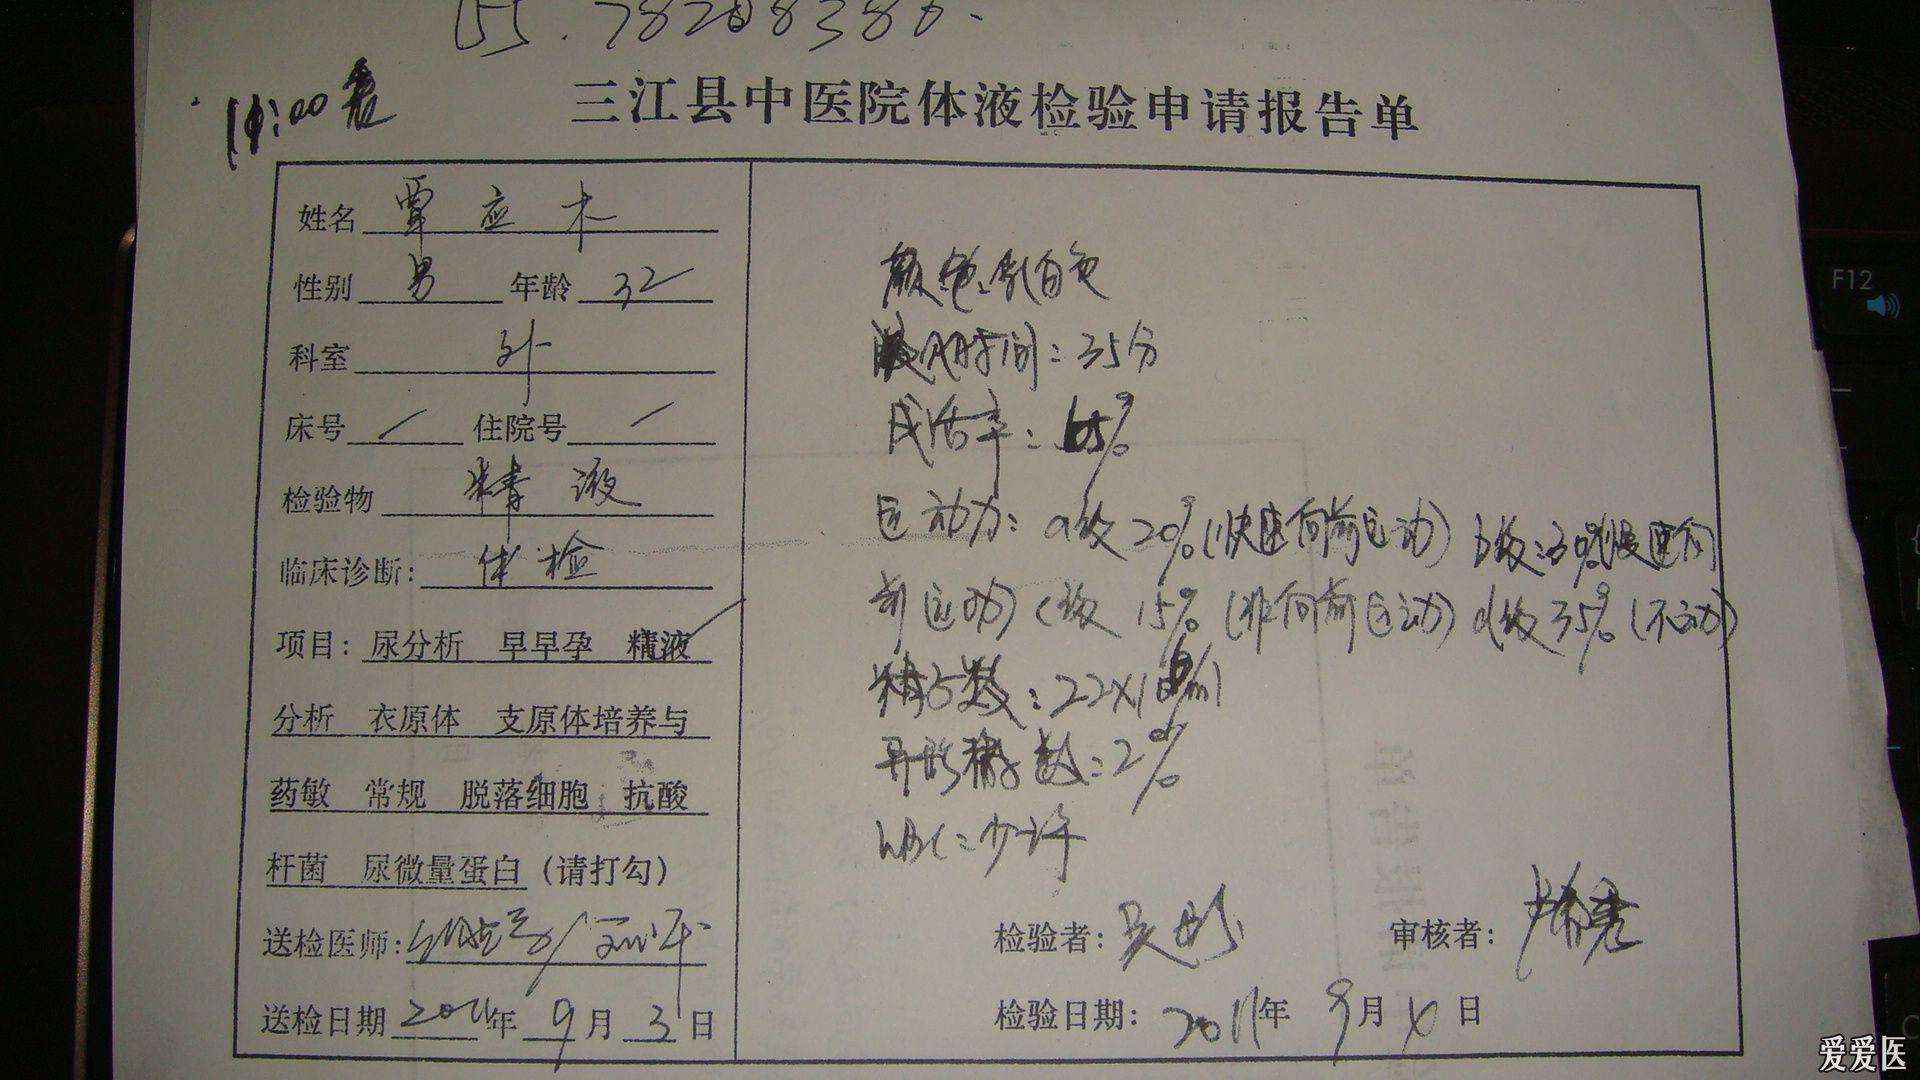 155.78208386.
三江县中医院体液检验申请报告单
姓名 覃应木
性别 男 年龄 32
科室 外
床号 / 住院号 /
检验物 精液
临床诊断: 体检
项目: 尿分析 早早孕 精液
分析 衣原体 支原体培养与
药敏 常规 脱落细胞 抗酸
杆菌 尿微量蛋白 (请打勾)
送检医师:
送检日期 2011年 9月 3日
颜色:乳白色
液化时间:35分
成活率:65%
运动力: a级20%(快速向前运动) b级:30%(慢速向
前运动) c级15%(非向前运动) d级35%(不动)
精子数:22×10
异形精子数:2%
WBC:少许
检验者: 审核者:
检验日期: 2011年 9月 4日
F12
爱爱医